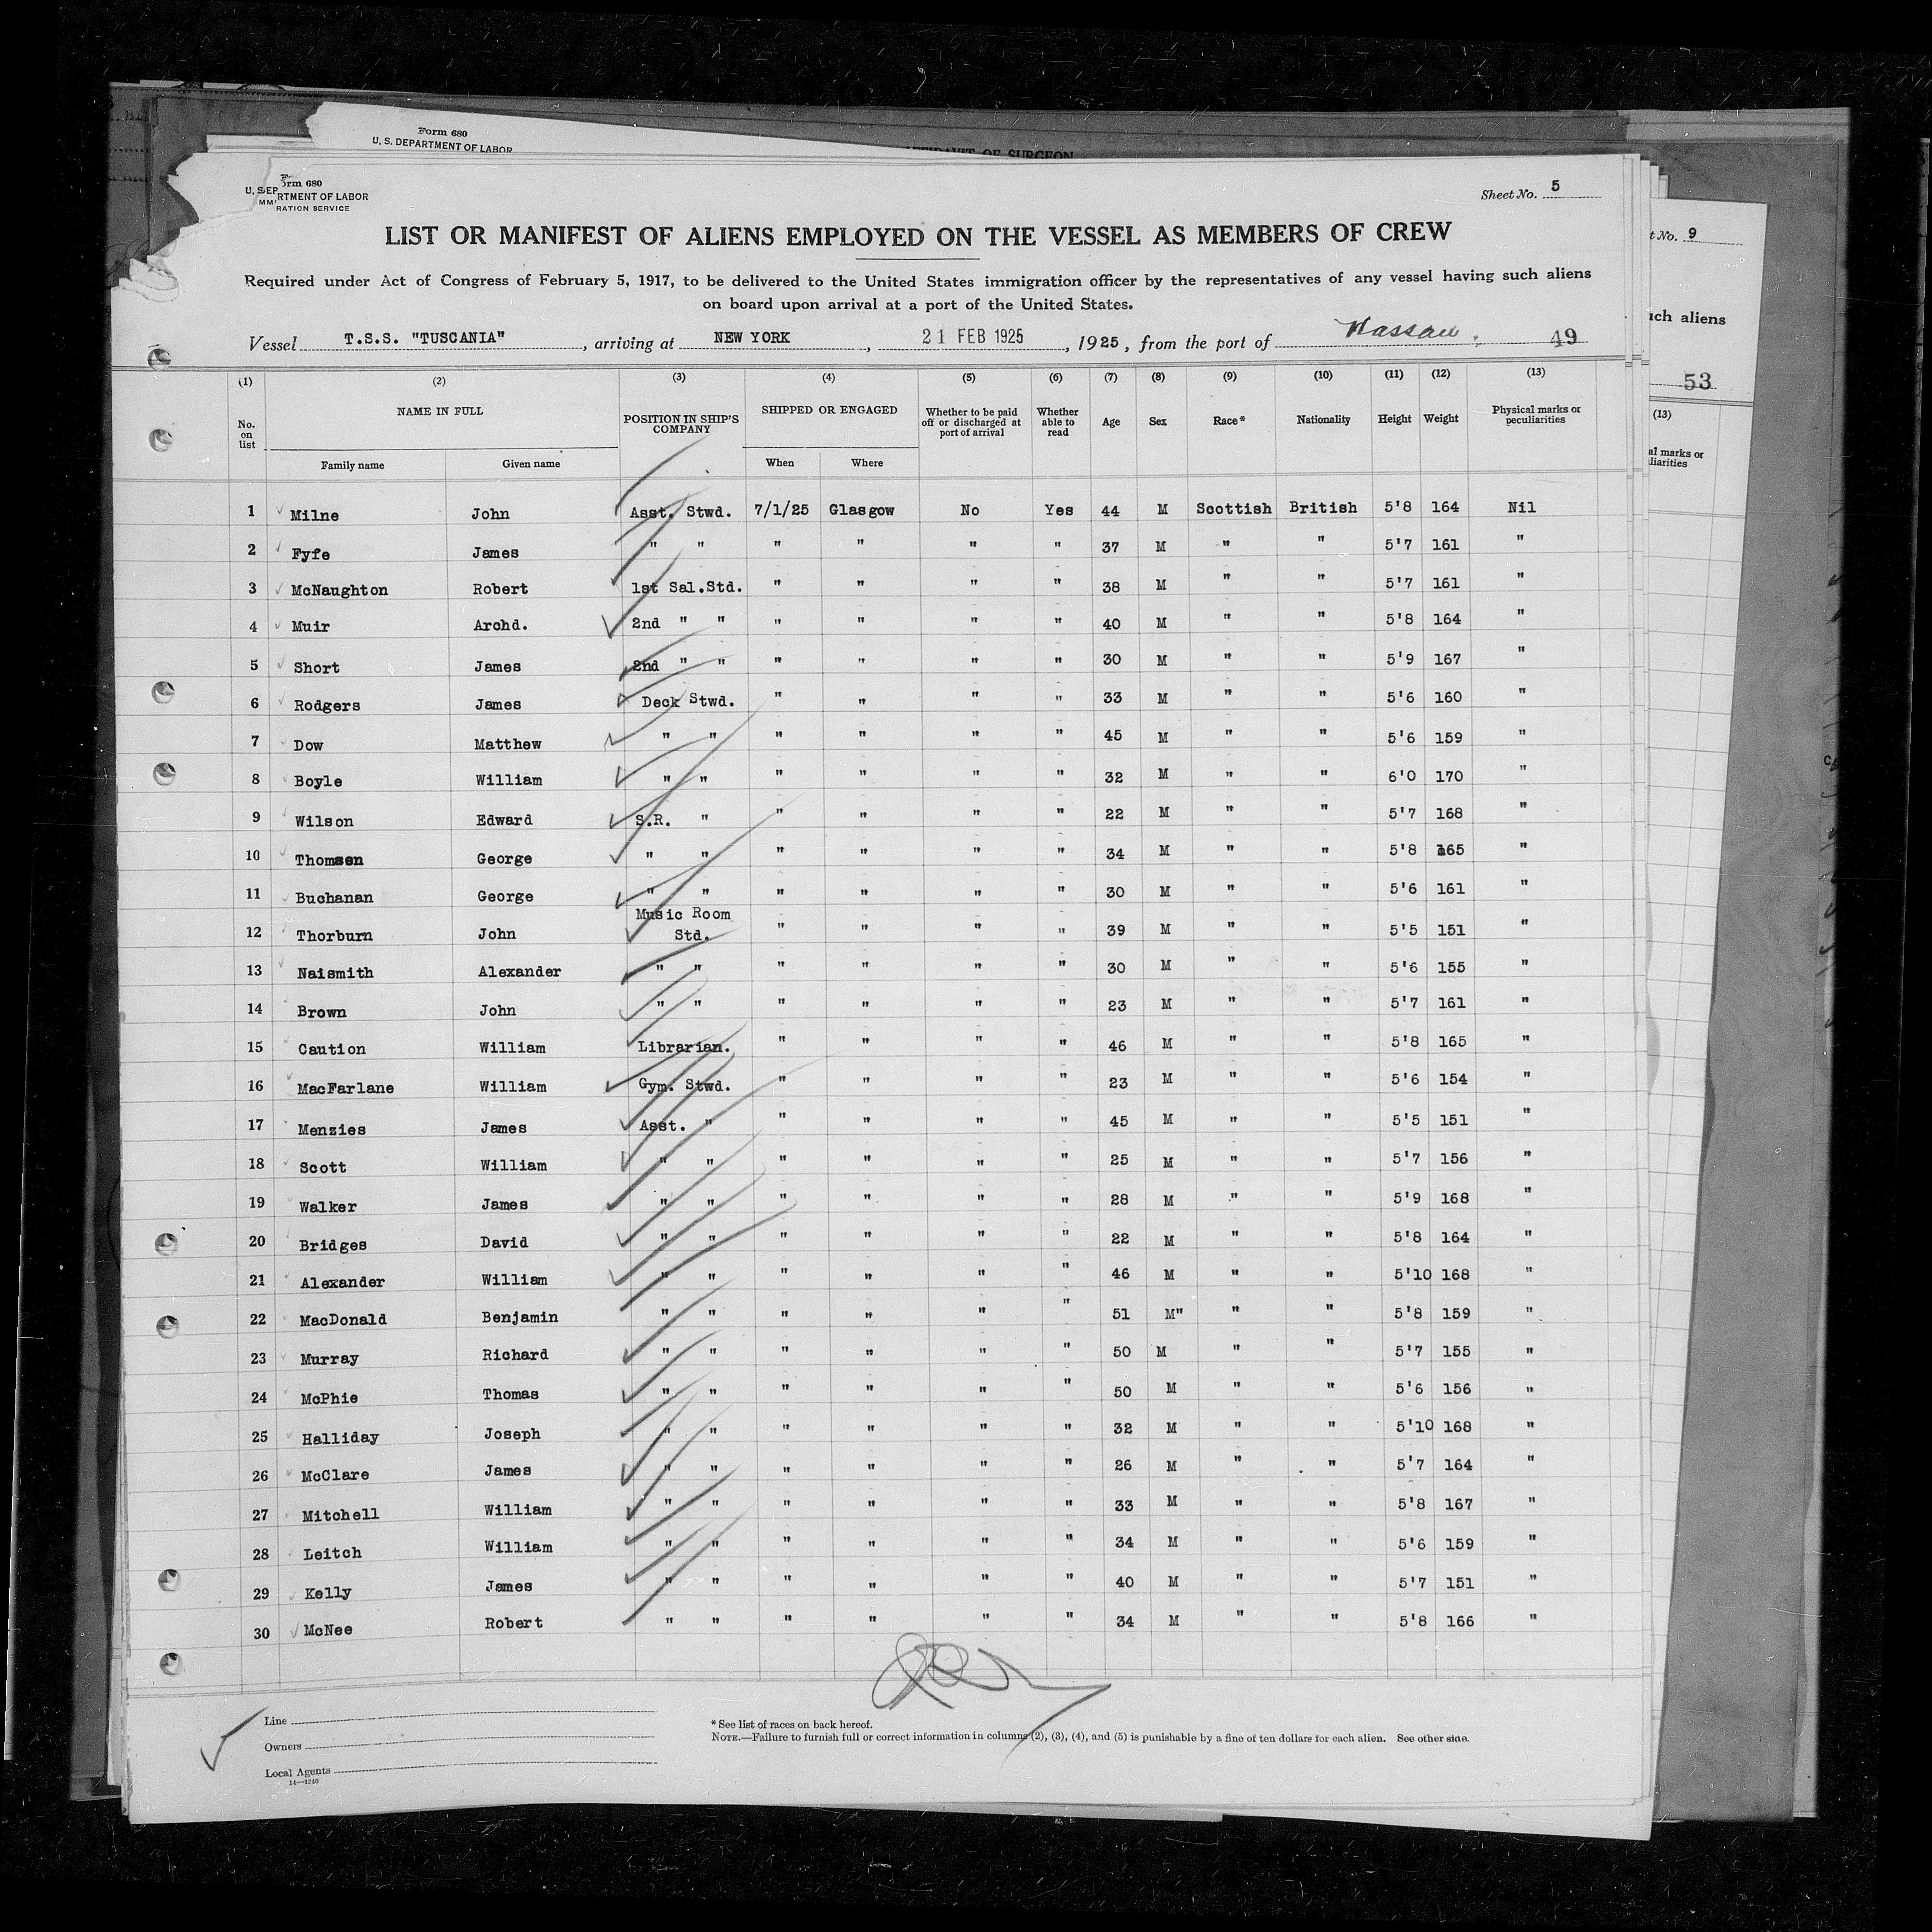 Form 680
U. S. DEPARTMENT OF LABOR
OF SURGEON
Form 680
U. S. DEPARTMENT OF LABOR
RATION SERVICE
Sheet No. 5
LIST OR MANIFEST OF ALIENS EMPLOYED ON THE VESSEL AS MEMBERS OF CREW
Required under Act of Congress of February 5, 1917, to be delivered to the United States immigration officer by the representatives of any vessel having such aliens
on board upon arrival at a port of the United States.
Vessel T.S.S. "TUSCANIA", arriving at NEW YORK, 21 FEB 1925, 1925, from the port of Nassau. 49
(1) (2) (3) (4) (5) (6) (7) (8) (9) (10) (11) (12) (13)
No. on list NAME IN FULL POSITION IN SHIP'S COMPANY SHIPPED OR ENGAGED Whether to be paid off or discharged at port of arrival Whether able to read Age Sex Race* Nationality Height Weight Physical marks or peculiarities
Family name Given name When Where
1 Milne John Asst. Stwd. 7/1/25 Glasgow No Yes 44 M Scottish British 5'8 164 Nil
2 Fyfe James " " " " " " 37 M " " 5'7 161 "
3 McNaughton Robert 1st Sal.Std. " " " " 38 M " " 5'7 161 "
4 Muir Archd. 2nd " " " " " " 40 M " " 5'8 164 "
5 Short James 2nd " " " " " " 30 M " " 5'9 167 "
6 Rodgers James Deck Stwd. " " " " 33 M " " 5'6 160 "
7 Dow Matthew " " " " " " 45 M " " 5'6 159 "
8 Boyle William " " " " " " 32 M " " 6'0 170 "
9 Wilson Edward S.R. " " " " " 22 M " " 5'7 168 "
10 Thomsen George " " " " " " 34 M " " 5'8 165 "
11 Buchanan George " " " " " " 30 M " " 5'6 161 "
12 Thorburn John Music Room Std. " " " " 39 M " " 5'5 151 "
13 Naismith Alexander " " " " " " 30 M " " 5'6 155 "
14 Brown John " " " " " " 23 M " " 5'7 161 "
15 Caution William Librarian. " " " " 46 M " " 5'8 165 "
16 MacFarlane William Gym. Stwd. " " " " 23 M " " 5'6 154 "
17 Menzies James Asst. " " " " " 45 M " " 5'5 151 "
18 Scott William " " " " " " 25 M " " 5'7 156 "
19 Walker James " " " " " " 28 M " " 5'9 168 "
20 Bridges David " " " " " " 22 M " " 5'8 164 "
21 Alexander William " " " " " " 46 M " " 5'10 168 "
22 MacDonald Benjamin " " " " " " 51 M" " " 5'8 159 "
23 Murray Richard " " " " " " 50 M " " 5'7 155 "
24 McPhie Thomas " " " " " " 50 M " " 5'6 156 "
25 Halliday Joseph " " " " " " 32 M " " 5'10 168 "
26 McClare James " " " " " " 26 M " " 5'7 164 "
27 Mitchell William " " " " " " 33 M " " 5'8 167 "
28 Leitch William " " " " " " 34 M " " 5'6 159 "
29 Kelly James " " " " " " 40 M " " 5'7 151 "
30 McNee Robert " " " " " " 34 M " " 5'8 166 "
Line
Owners
Local Agents
14—1240
* See list of races on back hereof.
NOTE.—Failure to furnish full or correct information in columns (2), (3), (4), and (5) is punishable by a fine of ten dollars for each alien. See other side.
No. 9
such aliens
53
(13)
marks or